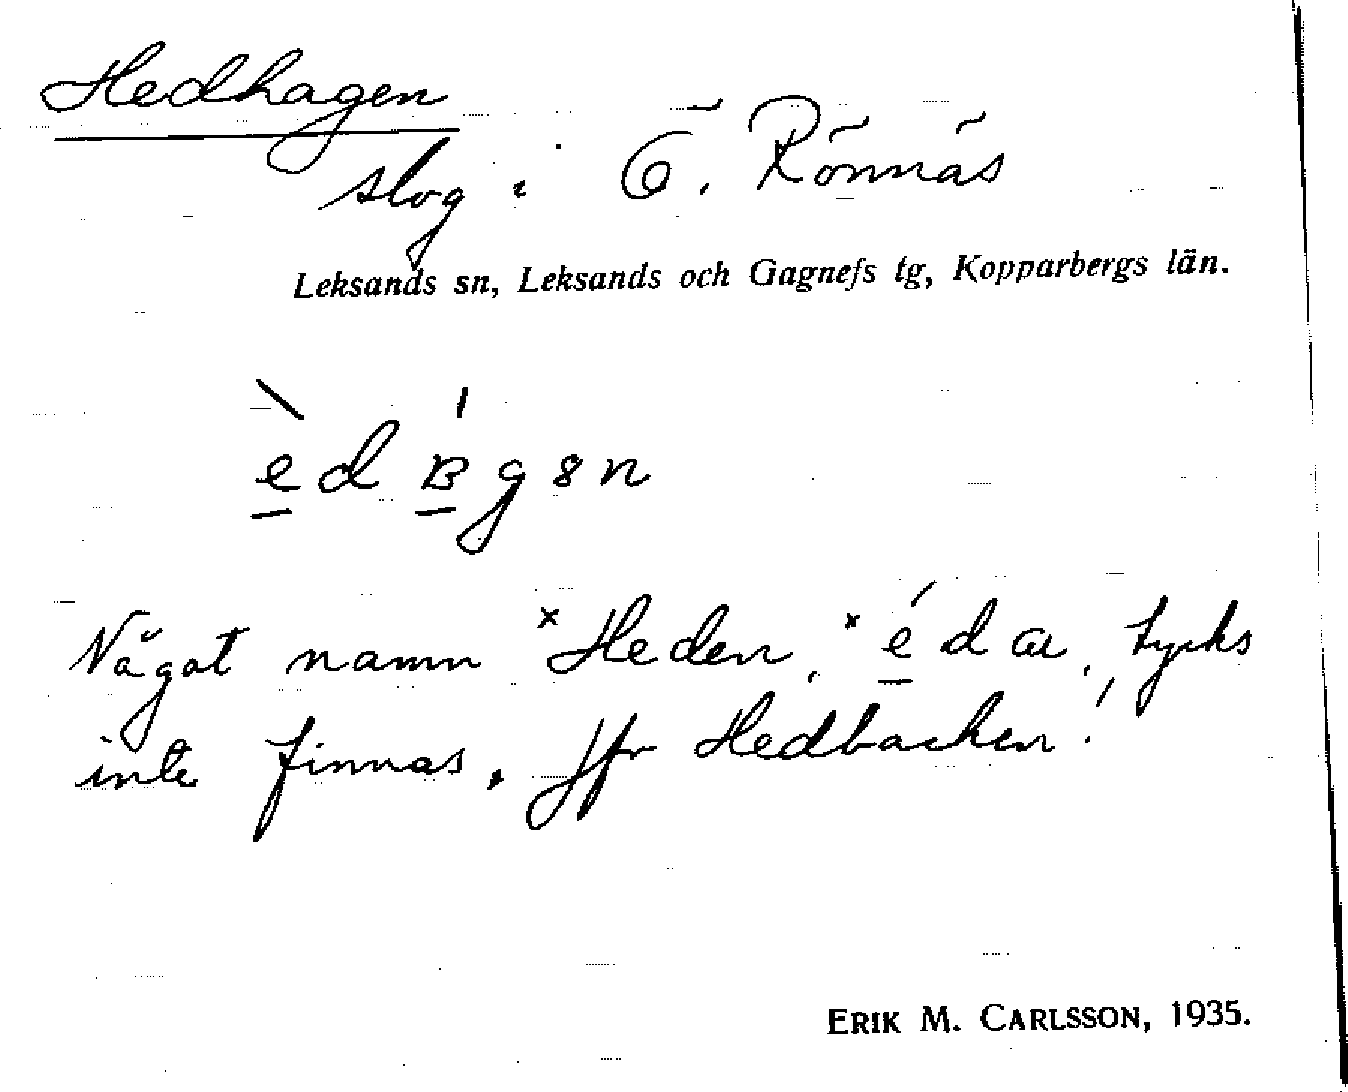 Hedhagen
slog i Ö. Rönnäs
Leksands sn, Leksands och Gagnefs tg, Kopparbergs län.
Något namn ˣHeden, tycks
inte finnas. Jfr Hedbacken!
ERIK M. CARLSSON, 1935.